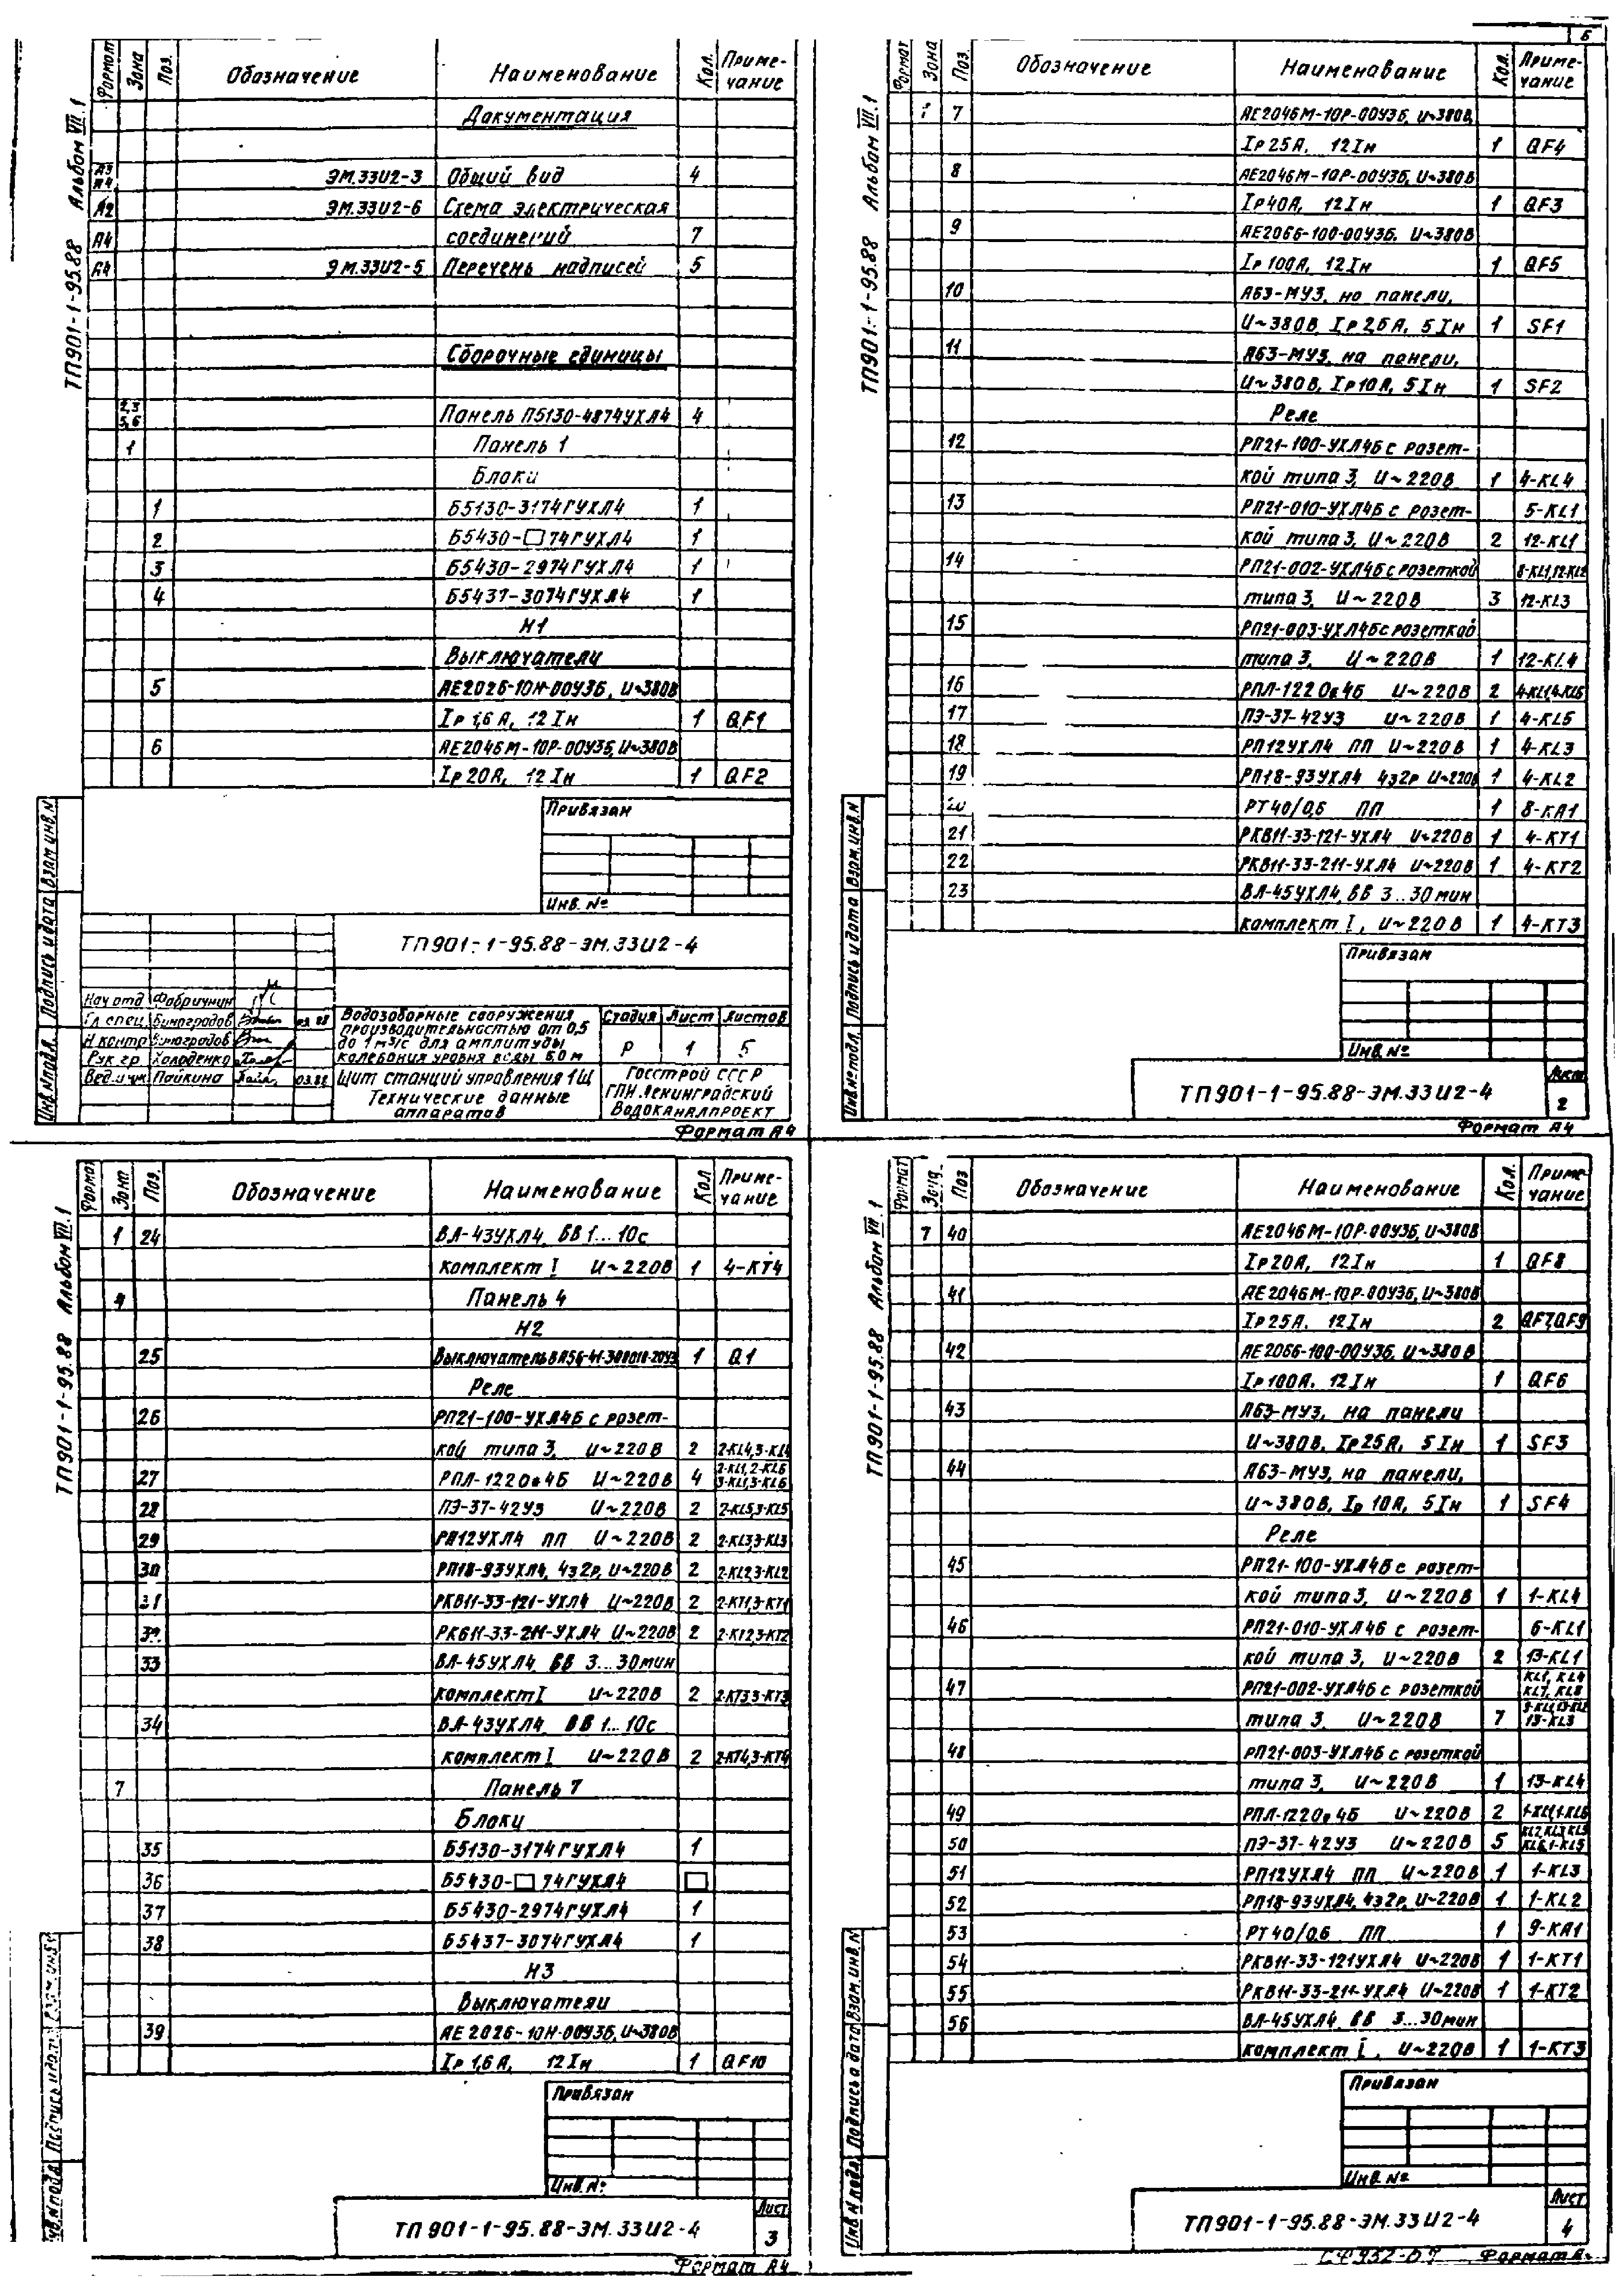 Б
Альбом VII.1
ТП901-1-95.88
Формат Зона Поз. Обозначение Наименование Кол. Примечание
Документация
А3 А4 ЭМ.33И2-3 Общий вид 4
А2 ЭМ.33И2-6 Схема электрическая
А4 соединений 7
А4 ЭМ.33И2-5 Перечень надписей 5
Сборочные единицы
2,3 5,6 Панель П5130-4874УХЛ4 4
1 Панель 1
Блоки
1 Б5130-3174ГУХЛ4 1
2 Б5430-□74ГУХЛ4 1
3 Б5430-2974ГУХЛ4 1
4 Б5437-3074ГУХЛ4 1
Н1
Выключатели
5 АЕ2026-10Н-00У3Б, И~380В
Iр 1,6А, 12Iн 1 QF1
6 АЕ2046М-10Р-00У3Б, И~380В
Iр 20А, 12Iн 1 QF2
Привязан
Инв. №
ТП901-1-95.88-ЭМ.33И2-4
Нач отд Фабричнин
Гл спец Виноградов
Н контр Виноградов
Рук. гр Холоденко
Пайкина 03.88
Водозаборные сооружения
производительностью от 0,5
до 1 м³/с для амплитуды
колебания уровня воды 6,0 м
Стадия Лист Листов
Р 1 5
Щит станций управления 1Щ
Технические данные
аппаратов
Госстрой СССР
ГПИ Ленинградский
Водоканалпроект
Инв.№подл. Подпись и дата Взам.инв.№
Формат А4
Альбом VII.1
ТП901-1-95.88
Формат Зона Поз Обозначение Наименование Кол. Примечание
7 АЕ2046М-10Р-00У3Б, И~380В,
Iр 25А, 12Iн 1 QF4
8 АЕ2046М-10Р-00У3Б, И~380В
Iр40А, 12Iн 1 QF3
9 АЕ2066-100-00У3Б, И~380В
Iр 100А, 12Iн 1 QF5
10 А63-МУ3, на панели,
И~380В, Iр 2,6А, 5Iн 1 SF1
11 А63-МУ3, на панели,
И~380В, Iр10А, 5Iн 1 SF2
Реле
12 РП21-100-УХЛ4Б с розет-
кой типа 3, И~220В 1 4-KL4
13 РП21-010-УХЛ4Б с розет- 5-KL1
кой типа 3, И~220В 2 12-KL1
14 РП21-002-УХЛ4Б с розеткой 8-KL1,12-KL2
типа 3, И~220В 3 12-KL3
15 РП21-003-УХЛ4Б с розеткой
типа 3, И~220В 1 12-KL4
16 РПЛ-1220*4Б И~220В 2 4-KL1,4-KL6
17 ПЭ-37-42У3 И~220В 1 4-KL5
18 РП12УХЛ4 ПП И~220В 1 4-KL3
19 РП18-93УХЛ4 4з2р И~220В 1 4-KL2
20 РТ40/0,6 ПП 1 8-КА1
21 РКВ11-33-121-УХЛ4 И~220В 1 4-КТ1
22 РКВ11-33-211-УХЛ4 И~220В 1 4-КТ2
23 ВЛ-45УХЛ4, ВВ 3...30 мин
комплект I, И~220В 1 4-КТ3
Привязан
Инв. №
ТП901-1-95.88-ЭМ.33И2-4
Лист 2
Инв.№подл. Подпись и дата Взам.инв.№
Формат А4
Альбом VII.1
ТП901-1-95.88
Формат Зона Поз. Обозначение Наименование Кол Примечание
1 24 ВЛ-43УХЛ4, ВВ 1...10с
комплект I И~220В 1 4-КТ4
4 Панель 4
Н2
25 1 Q1
Реле
26 РП21-100-УХЛ4Б с розет-
кой типа 3, И~220В 2 2-KL4,3-KL4
27 РПЛ-1220*4Б И~220В 4 2-KL1,2-KL6 3-KL1,3-KL6
28 ПЭ-37-42У3 И~220В 2 2-KL5,3-KL5
29 РП12УХЛ4 ПП И~220В 2 2-KL3,3-KL3
30 РП18-93УХЛ4, 4з2р, И~220В 2 2-KL2,3-KL2
31 РКВ11-33-121-УХЛ4 И~220В 2 2-КТ1,3-КТ1
32 РКВ11-33-211-УХЛ4 И~220В 2 2-КТ2,3-КТ2
33 ВЛ-45УХЛ4, ВВ 3...30мин
комплект I И~220В 2 2-КТ3,3-КТ3
34 ВЛ-43УХЛ4, ВВ 1...10с
комплект I И~220В 2 2-КТ4,3-КТ4
7 Панель 7
Блоки
35 Б5130-3174ГУХЛ4 1
36 Б5430-□74ГУХЛ4 □
37 Б5430-2974ГУХЛ4 1
38 Б5437-3074ГУХЛ4 1
Н3
Выключатели
39 АЕ2026-10Н-00У3Б, И~380В
Iр 1,6А, 12Iн 1 QF10
Привязан
Инв. №
ТП901-1-95.88-ЭМ.33И2-4
Лист 3
Формат А4
Альбом VII.1
ТП901-1-95.88
Формат Зона Поз Обозначение Наименование Кол. Примечание
7 40 АЕ2046М-10Р-00У3Б, И~380В
Iр20А, 12Iн 1 QF8
41 АЕ2046М-10Р-00У3Б, И~380В
Iр25А, 12Iн 2 QF7,QF9
42 АЕ2066-100-00У3Б, И~380В
Iр100А, 12Iн 1 QF6
43 А63-МУ3, на панели
И~380В, Iр25А, 5Iн 1 SF3
44 А63-МУ3, на панели,
И~380В, Iр 10А, 5Iн 1 SF4
Реле
45 РП21-100-УХЛ4Б с розет-
кой типа 3, И~220В 1 1-KL4
46 РП21-010-УХЛ4Б с розет- 6-KL1
кой типа 3, И~220В 2 13-KL1
47 РП21-002-УХЛ4Б с розеткой KL1, KL4 KL7, KL8
типа 3, И~220В 7 9-KL1,13-KL2 13-KL3
48 РП21-003-УХЛ4Б с розеткой
типа 3, И~220В 1 13-KL4
49 РПЛ-1220*4Б И~220В 2 1-KL1,1-KL6
50 ПЭ-37-42У3 И~220В 5 KL2,KL3,KL5 KL6,1-KL5
51 РП12УХЛ4 ПП И~220В 1 1-KL3
52 РП18-93УХЛ4, 4з2р, И~220В 1 1-KL2
53 РТ40/0,6 ПП 1 9-КА1
54 РКВ11-33-121УХЛ4 И~220В 1 1-КТ1
55 РКВ11-33-211-УХЛ4 И~220В 1 1-КТ2
56 ВЛ-45УХЛ4, ВВ 3...30мин
комплект I, И~220В 1 1-КТ3
Привязан
Инв. №
ТП901-1-95.88-ЭМ.33И2-4
Лист 4
Инв.№подл. Подпись и дата Взам.инв.№
Формат А4